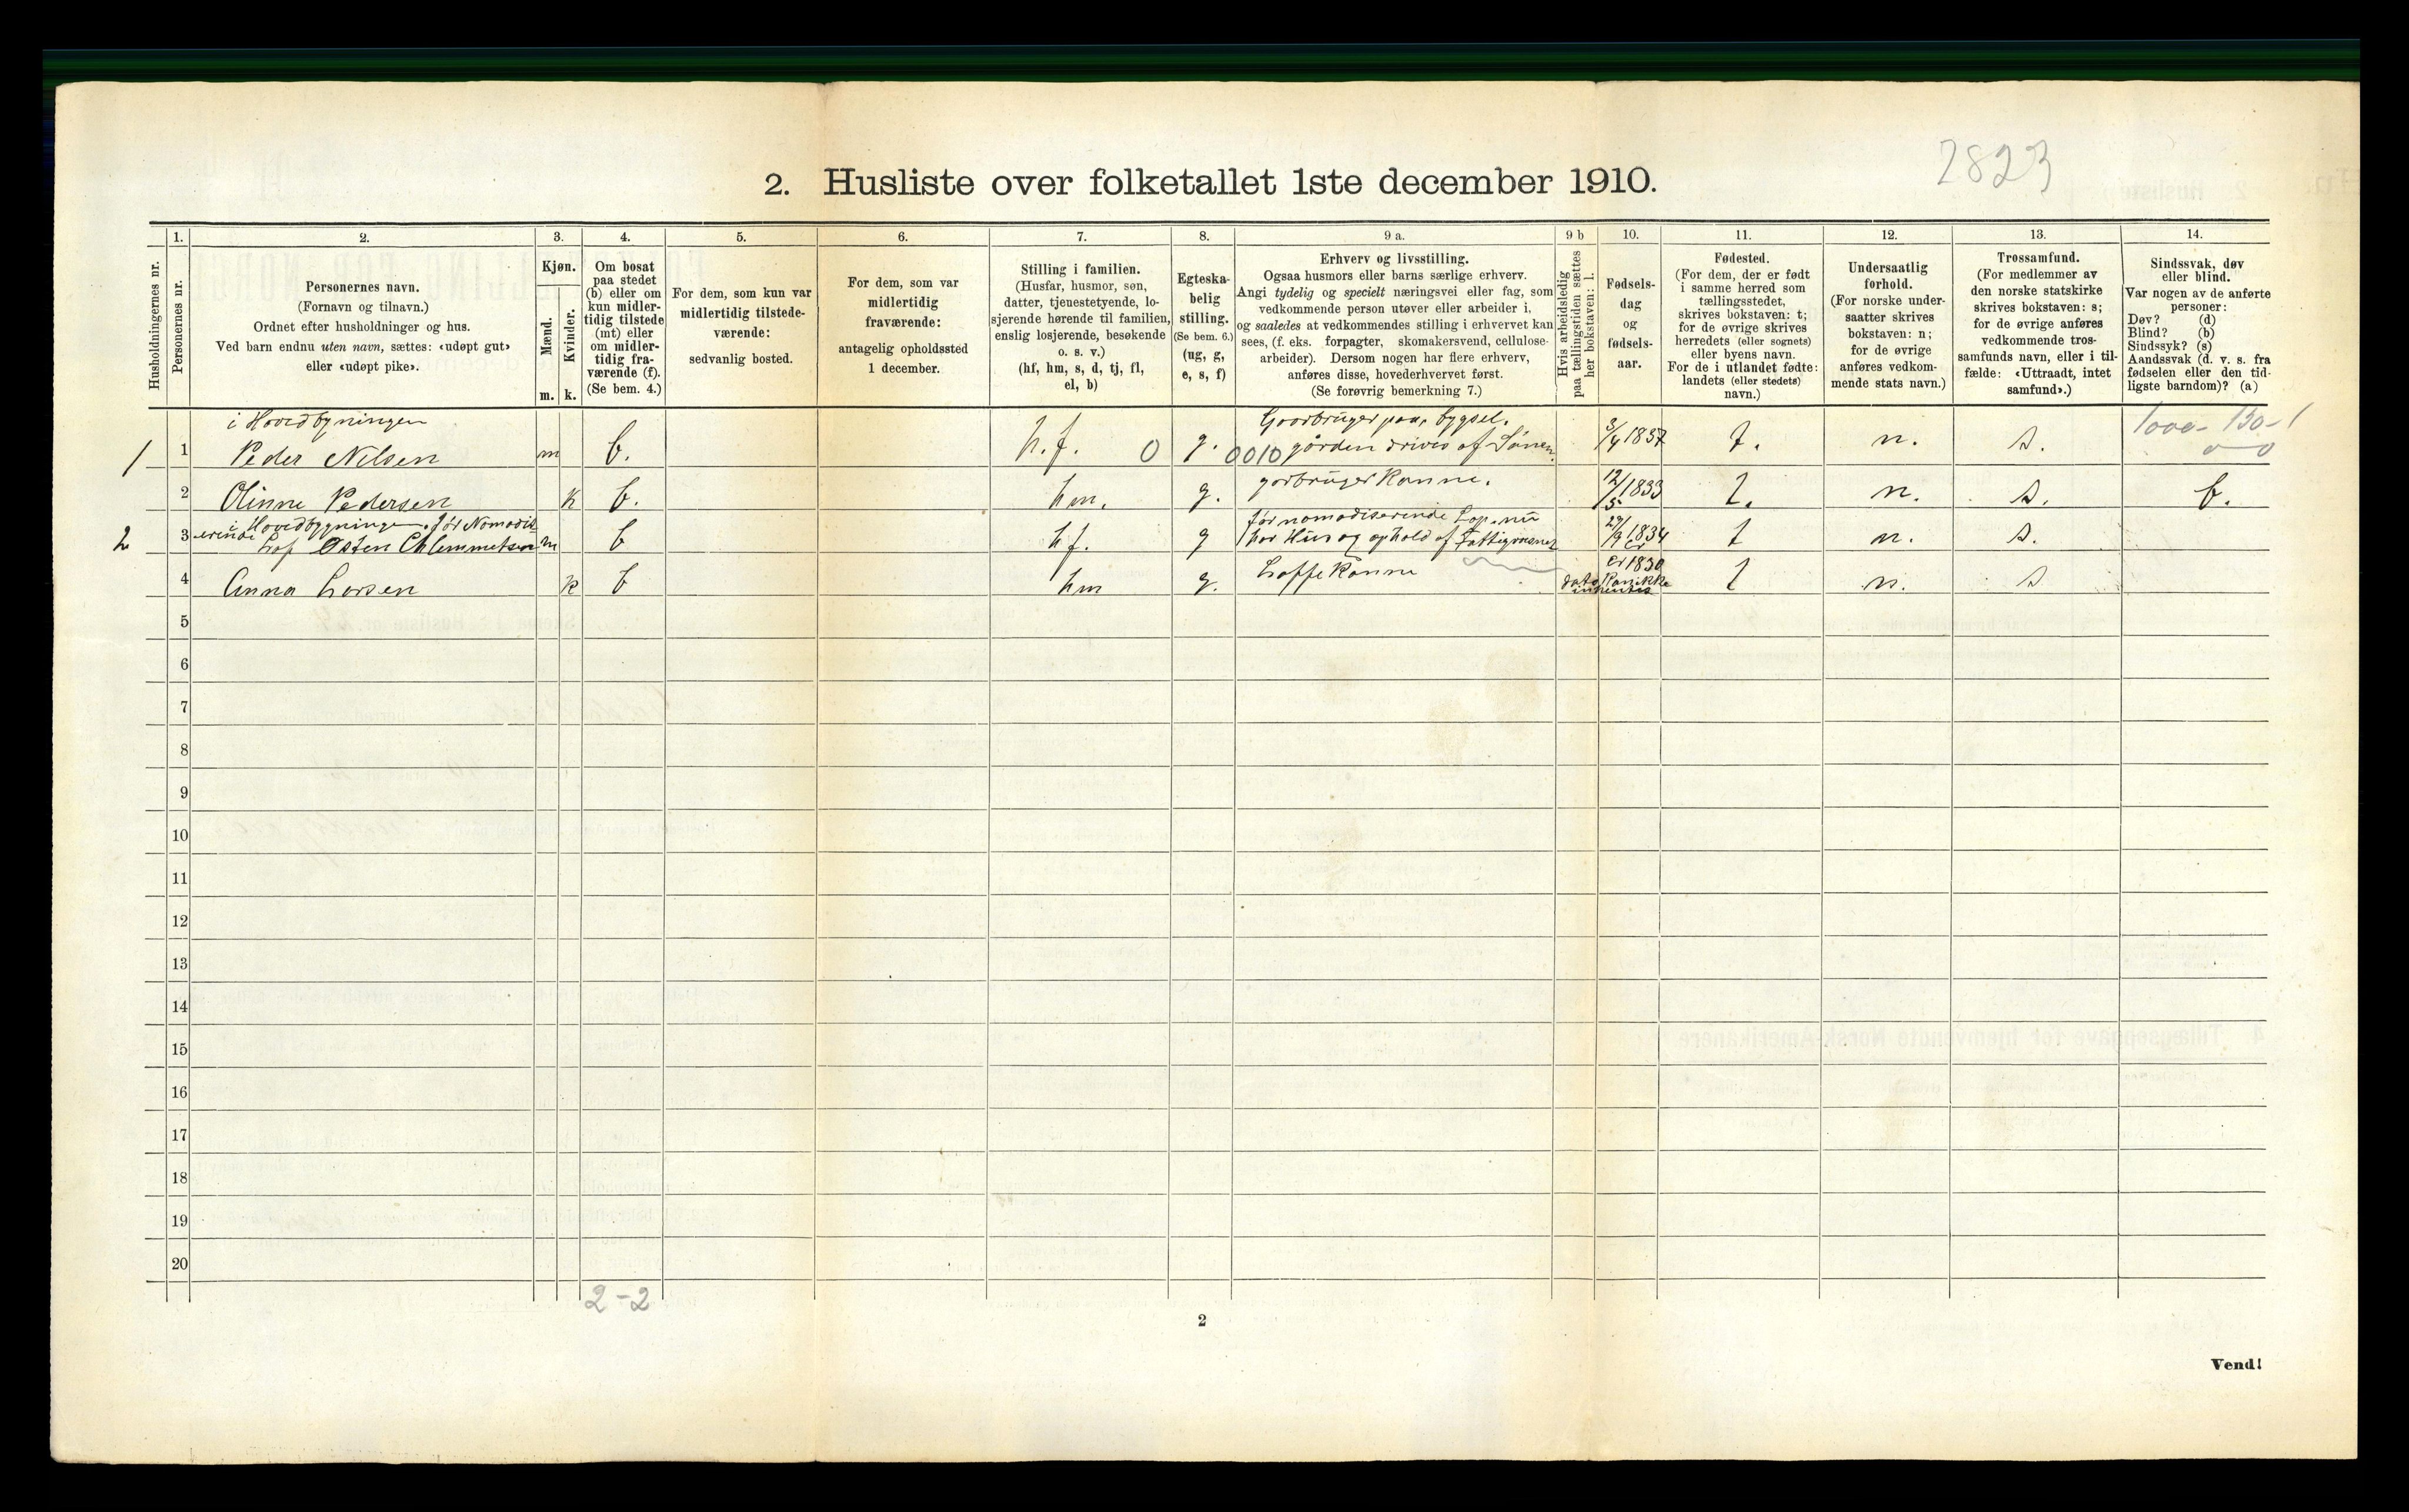 2823
2. Husliste over folketallet 1ste december 1910.
Husholdningernes nr.
1.
Personernes nr.
2.
Personernes navn.
(Fornavn og tilnavn.)
Ordnet efter husholdninger og hus.
Ved barn endnu uten navn, sættes: «udøpt gut»
eller «udøpt pike».
3.
Kjøn.
Mænd.
Kvinder.
m. k.
4.
Om bosat
paa stedet
(b) eller om
kun midler-
tidig tilstede
(mt) eller
om midler-
tidig fra-
værende (f).
(Se bem. 4.)
5.
For dem, som kun var
midlertidig tilstede-
værende:
sedvanlig bosted.
6.
For dem, som var
midlertidig
fraværende:
antagelig opholdssted
1 december.
7.
Stilling i familien.
(Husfar, husmor, søn,
datter, tjenestetyende, lo-
sjerende hørende til familien,
enslig losjerende, besøkende
o. s. v.)
(hf, hm, s, d, tj, fl,
el, b)
8.
Egteska-
belig
stilling.
(Se bem. 6.)
(ug, g,
e, s, f)
9 a.
Erhverv og livsstilling.
Ogsaa husmors eller barns særlige erhverv.
Angi tydelig og specielt næringsvei eller fag, som
vedkommende person utøver eller arbeider i,
og saaledes at vedkommendes stilling i erhvervet kan
sees, (f. eks. forpagter, skomakersvend, cellulose-
arbeider). Dersom nogen har flere erhverv,
anføres disse, hovederhvervet først.
(Se forøvrig bemerkning 7.)
9 b
Hvis arbeidsledig
paa tællingstiden sættes
her bokstaven: l.
10.
Fødsels-
dag
og
fødsels-
aar.
11.
Fødested.
(For dem, der er født
i samme herred som
tællingsstedet,
skrives bokstaven: t;
for de øvrige skrives
herredets (eller sognets)
eller byens navn.
For de i utlandet fødte:
landets (eller stedets)
navn.)
12.
Undersaatlig
forhold.
(For norske under-
saatter skrives
bokstaven: n;
for de øvrige
anføres vedkom-
mende stats navn.)
13.
Trossamfund.
(For medlemmer av
den norske statskirke
skrives bokstaven: s;
for de øvrige anføres
vedkommende tros-
samfunds navn, eller i til-
fælde: «Uttraadt, intet
samfund».)
14.
Sindssvak, døv
eller blind.
Var nogen av de anførte
personer:
Døv? (d)
Blind? (b)
Sindssyk? (s)
Aandssvak (d. v. s. fra
fødselen eller den tid-
ligste barndom)? (a)
i Hovedbygningen
Gaarbruger paa, bygsel.
1000- 130-1
1 1 Peder Nilsen m b. h.f. 0 g. 0010 gården drives af Sønen. 3/4 1837 t. n. s. 0 0
2 Olinne Pedersen k b. hm. g. gorbruger Konne. 12/5 1833 t. n. s. b.
i Hovedbygningen. før Nomadis
før nomadiserende Lap. nu
2 3 erende Lap Østen Chlemmetsen m b hf. g har Hus og ophold af Fattigvæsnet 27/9 1834 t n. s.
er 1830
4 Anna Larsen k b hm g. Lappe Konne dato Kan ikke t n. s
inhentes
5
6
7
8
9
10
11
12
13
14
15
16
17
18
19
20
2-2
2
Vend!